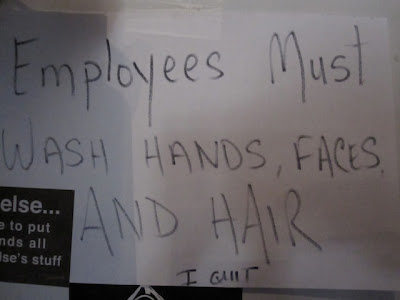 Employees Must
WASH HANDS, FACES,
AND HAIR
I QUIT
else...
e to put
nds all
lse's stuff